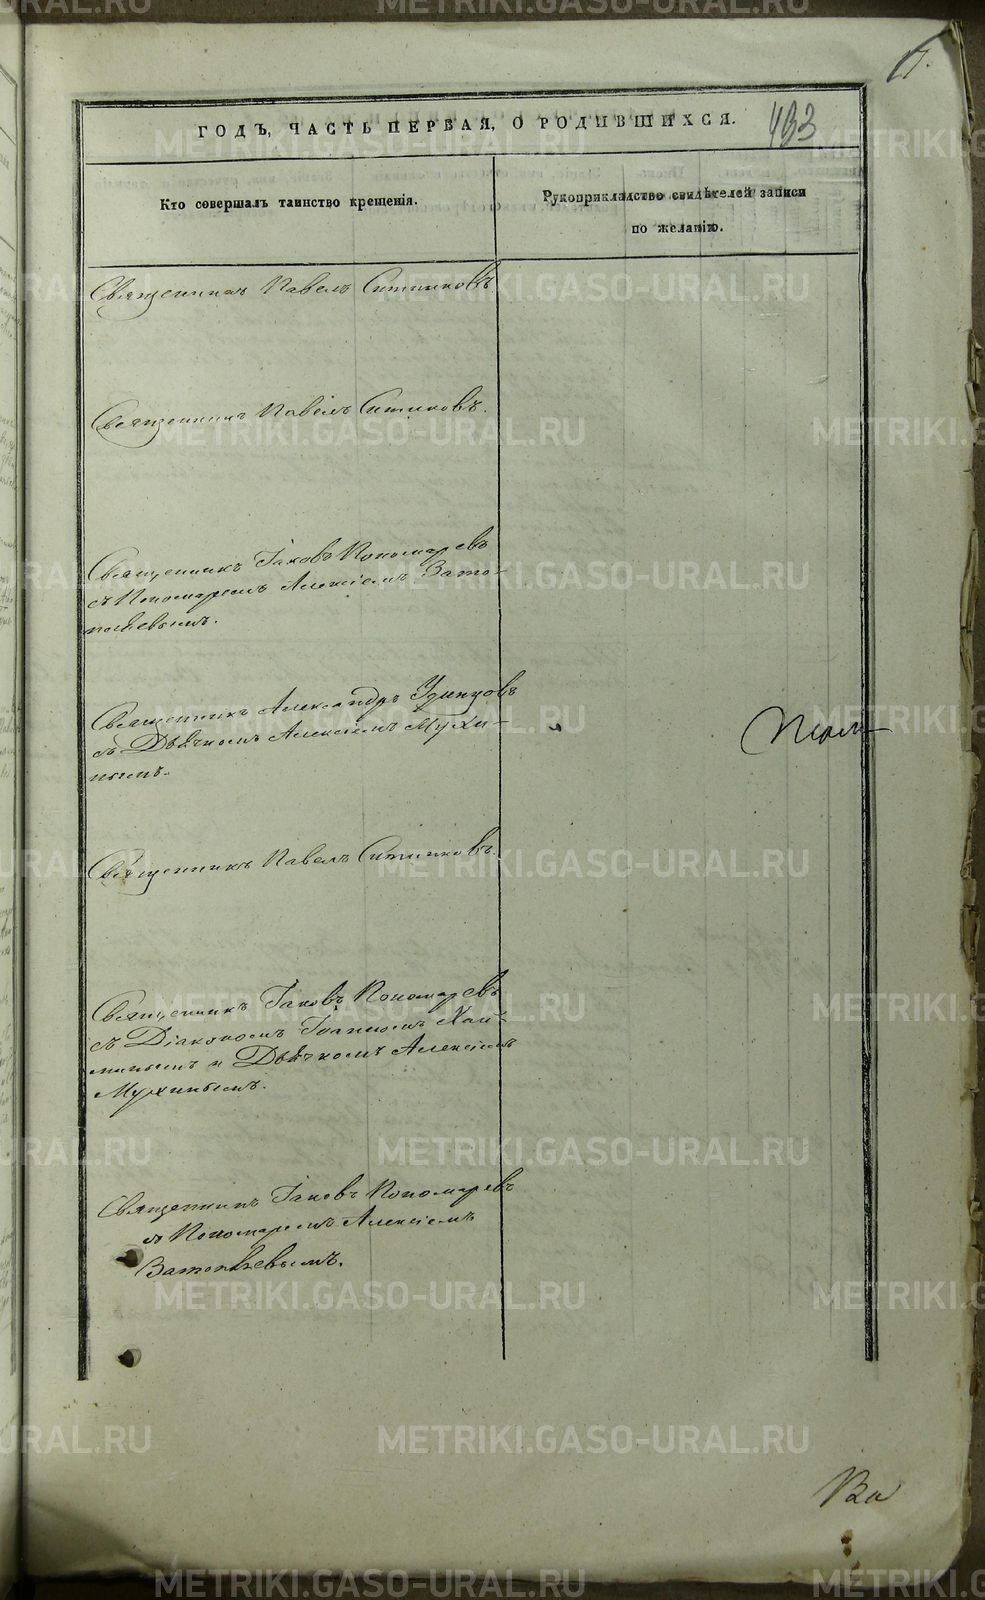 17.
ГОДЪ, ЧАСТЬ ПЕРВАЯ, О РОДИВШИХСЯ. 433
Кто совершалъ таинство крещенія.
Рукоприкладство свидѣтелей записи
по желанію.
Священникъ Павелъ Ситниковъ.
Священникъ Павелъ Ситниковъ.
Священникъ Іаковъ Пономаревъ
съ Пономаремъ Алексіемъ Зато-
пляевымъ.
Священникъ Александръ Удинцовъ
съ Дьячкомъ Алексіемъ Мухи-
нымъ.
Священникъ Павелъ Ситниковъ.
Священникъ Іаковъ Пономаревъ
съ Діакономъ Іоанномъ
и Дьячкомъ Алексіемъ
Мухинымъ.
Священникъ Іаковъ Пономаревъ
съ Пономаремъ Алексіемъ
METRIKI.GASO-URAL.RU